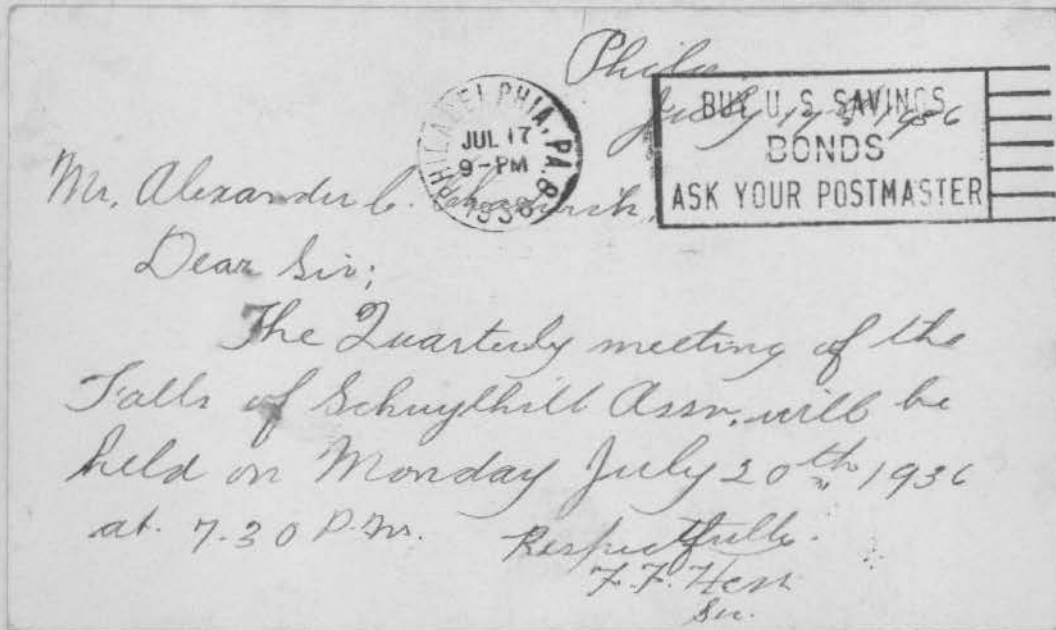 Phila
July 17th 1936
PHILADELPHIA, PA. 8
JUL 17
9-PM
1936
BUY U. S. SAVINGS
BONDS
ASK YOUR POSTMASTER
Mr. Alexander C.
Dear Sir;
The Quarterly meeting of the
Falls of Schuylkill Assn. will be
held on Monday July 20th 1936
at 7.30 P.M.
Respectfully.
F. F. Hess